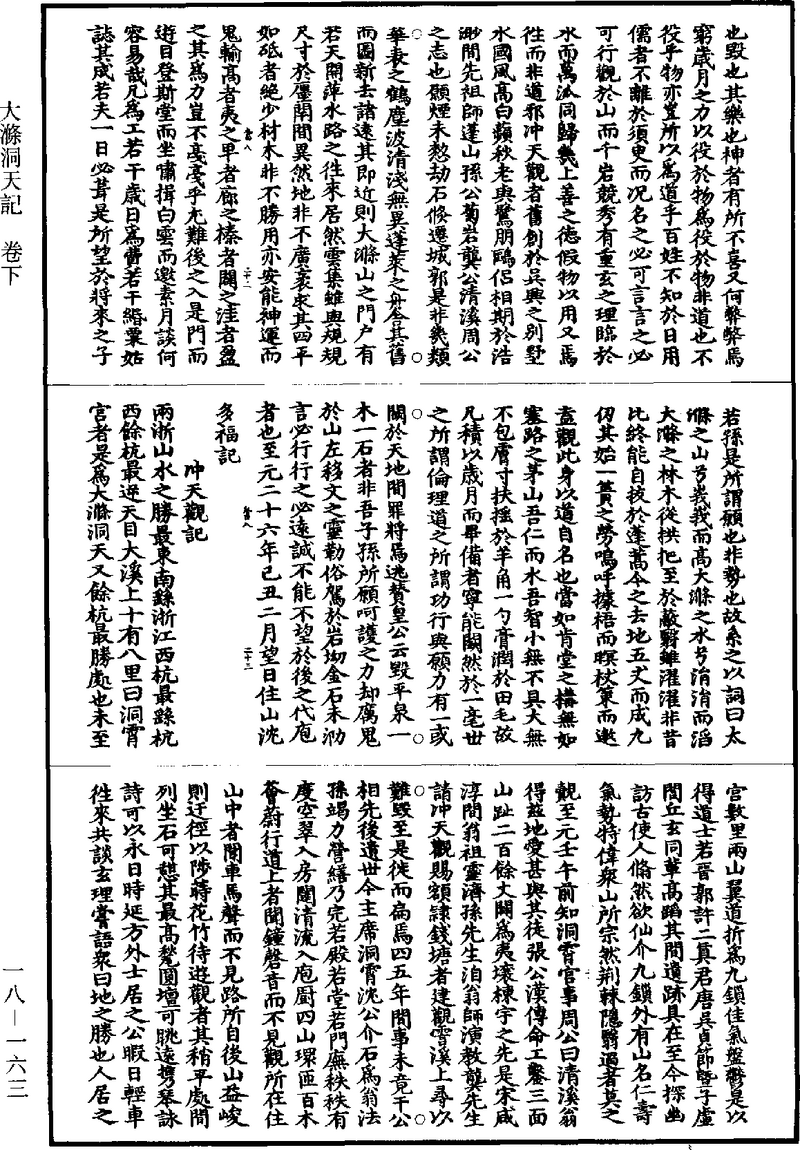 大滌洞天記　卷下
也毀也其樂也神者有所不喜又何弊弊焉
窮歲月之力以役於物爲役於物非道也不
役乎物亦豈所以爲道乎百姓不知於日用
儒者不離於須臾而况名之必可言言之必
可行觀於山而千岩競秀有重玄之理臨於
水而萬派同歸幾上善之德假物以用又焉
往而非道邪冲天觀者舊創於吳興之别墅
水國風高白蘋秋老與鷺朋鷗侣相期於浩
渺間先祖師蓬山孫公菊岩龔公清溪周公
之志也願煙未愸劫石倏遷城郭是非幾類
華表之鶴塵波清淺無異蓬萊之舟舍其舊
而圖新去諸遠其即近則大滌山之門户有
若天開萍水路之往來居然雲集雖與規規
尺寸於廛閈間異然地非不廣袤求其四平
如砥者絶少材木非不勝用亦安能神運而
鬼輸高者夷之卑者廊之榛者闢之洼者盈
之其爲力豈不戞戞乎尤難後之入是門而
遊目登斯堂而坐嘯揖白雲而邀素月談何
容易哉凡爲工若干歲日爲費若干緡粟姑
誌其成若夫一日必葺是所望於將來之子
若孫是所謂願也非勢也故系之以詞曰太
滌之山兮峩峩而高大滌之水兮湝湝而滔
大滌之林木從拱把至於蔽翳雖濯濯非昔
比終能自拔於蓬蒿今之去地五丈而成九
仞其始一簣之勞鳴呼據梧而瞑杖策而遨
盍觀此身以道自名也當如肯堂之構無如
塞路之茅山吾仁而水吾智小無不具大無
不包膚寸扶摇於羊角一勺膏潤於田毛故
凡積以歲月而畢備者寧能闕然於一毫世
之所謂倫理道之所謂功行與願力有一或
闕於天地間罪將焉逃贊皇公云毀平泉一
木一石者非吾子孫所願呵護之力却腐鬼
於山左移文之靈勒俗駕於岩坳金石未泐
言必行行之必遠誠不能不望於後之代庖
者也至元二十六年己丑二月望日住山沈
多福記
冲天觀記
兩浙山水之勝最東南繇浙江西杭最繇杭
西餘杭最逆天目大溪上十有八里曰洞霄
宫者是爲大滌洞天又餘杭最勝處也未至
宫數里兩山翼道折爲九鎖佳氣盤鬱是以
得道士若晉郭許二眞君唐吳貞節暨子虛
閭丘玄同輩高蹈其間遺跡具在至今探幽
訪古使人翛然欲仙介九鎖外有山名仁壽
氣勢特偉衆山所宗然荆棘隱翳過者莫之
覩至元壬午前知洞霄宫事周公曰清溪翁
得兹地愛甚與其徒張公漢傳命工鑿三面
山趾二百餘丈闢爲夷壤棟宇之先是宋咸
淳間翁祖靈濟孫先生洎翁師演教龔先生
請冲天觀賜額隷錢塘者建觀霅溪上尋以
難毀至是徙而扁焉四五年間事未竟干公
相先後遺世今主席洞霄沈公介石爲翁法
孫竭力營繕乃完若殿若堂若門廡秩秩有
度空翠入房闥清流入庖厨四山環匝百木
薈蔚行道上者聞鐘磬音而不見觀所在住
山中者闻車馬聲而不見路所自後山益峻
則迂徑以陟蒔花竹待遊觀者其稍平處間
列坐石可憩其最高甃圜壇可眺遠携琴詠
詩可以永日時延方外士居之公暇日輕車
往來共談玄理嘗語衆曰地之勝也人居之
一八—一六三